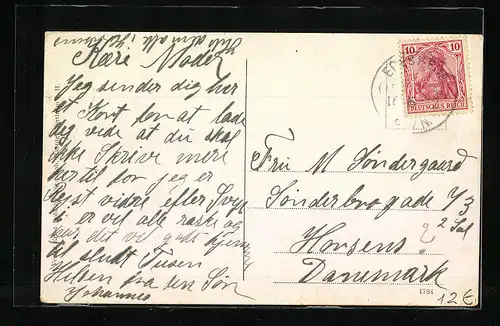 Hils dem alle i Horsens
Kære Moder
Jeg sender dig her
et Kort for at lade
dig vide at du skal
ikke Skrive mere
hertil for jeg er
rejst videre efter
i er vel alle raske og
det vi godt hjem
til slutt Tusen
Hilsen fra en Søn
Johannes
10 10
DEUTSCHES REICH
Fru M Søndergaard
Sønderbrogade 73
2 Sal
Horsens
Danemark
1784
12€